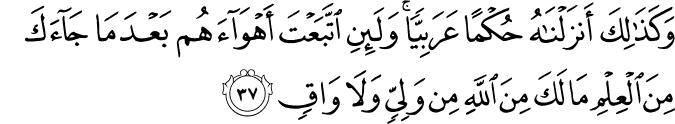 وَكَذَٰلِكَ أَنزَلْنَٰهُ حُكْمًا عَرَبِيًّا ۚ وَلَئِنِ ٱتَّبَعْتَ أَهْوَآءَهُم بَعْدَ مَا جَآءَكَ
مِنَ ٱلْعِلْمِ مَا لَكَ مِنَ ٱللَّهِ مِن وَلِىٍّ وَلَا وَاقٍ ٣٧